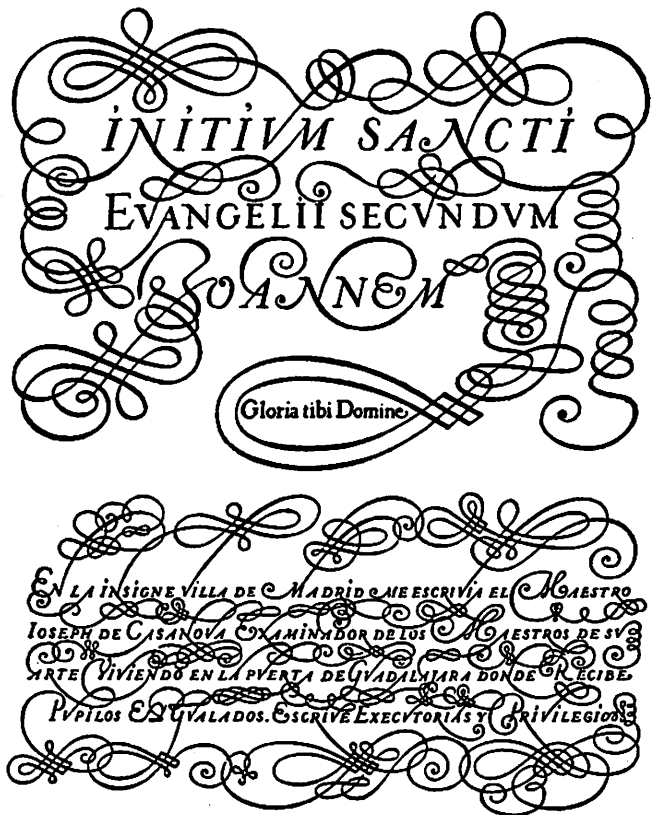 INITIVM SANCTI
EVANGELII SECVNDVM
IOANNEM
Gloria tibi Domine
EN LA INSIGNE VILLA DE MADRID ME ESCRIVIA EL MAESTRO
IOSEPH DE CASANOVA EXAMINADOR DE LOS MAESTROS DE SV
ARTE VIVIENDO EN LA PVERTA DE GVADALAJARA DONDE RECIBE
PVPILOS EYGVALADOS. ESCRIVE EXECVTORIAS Y PRIVILEGIOS